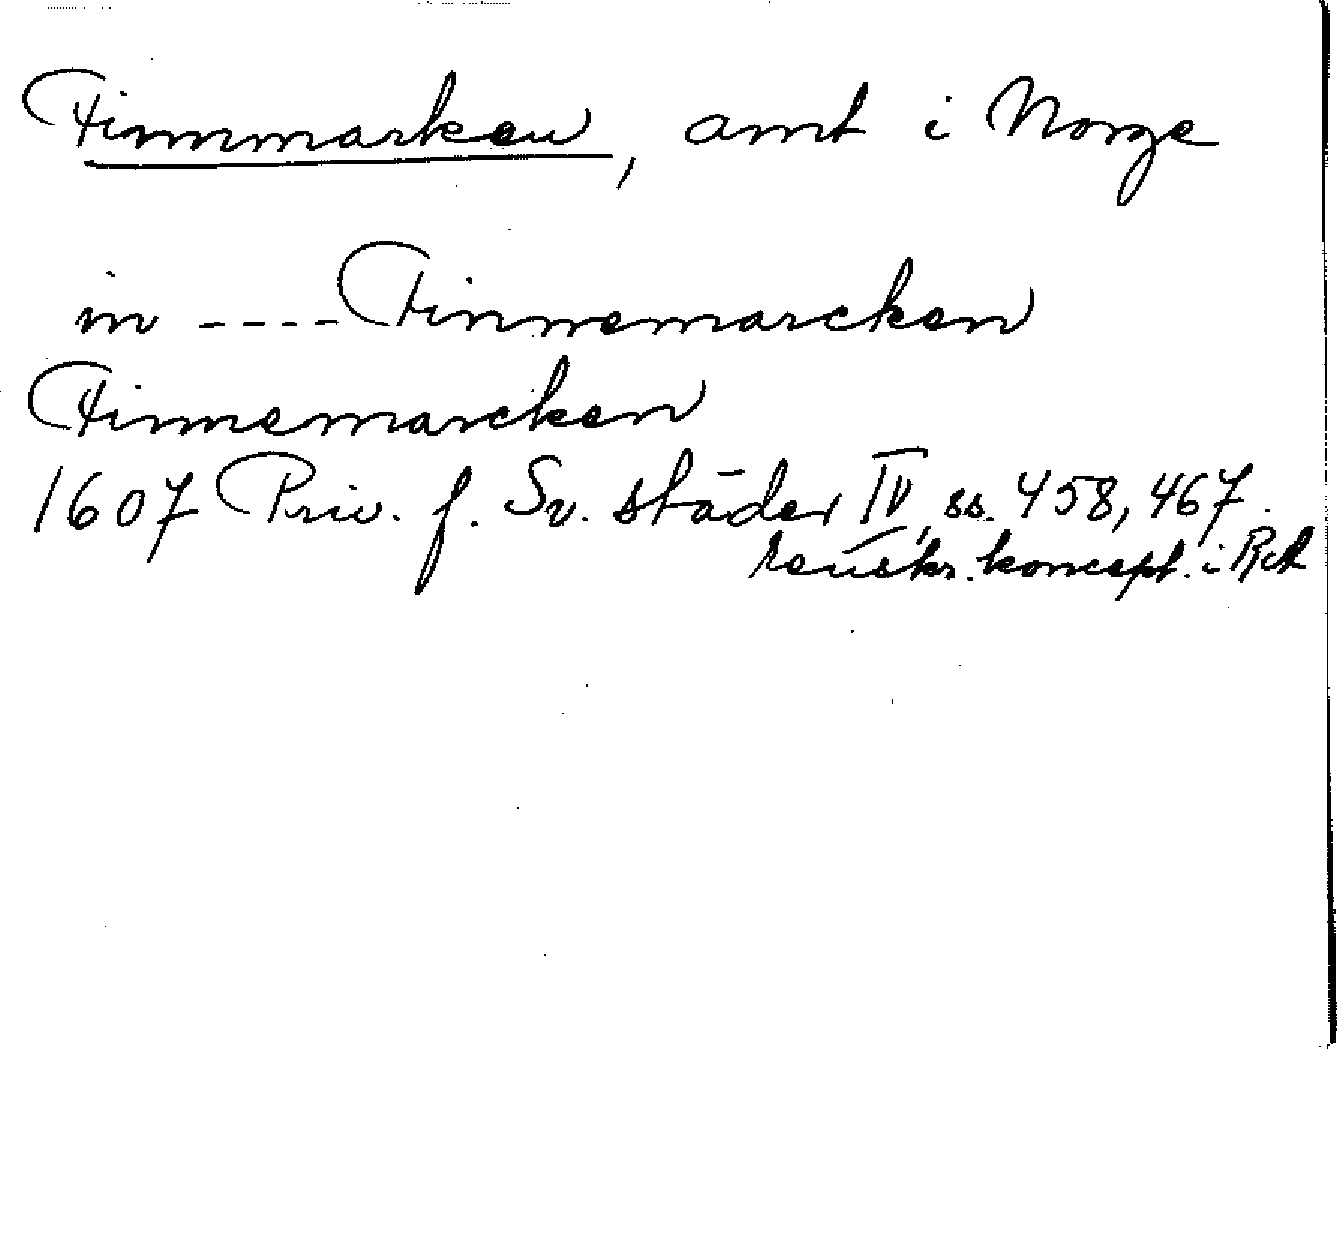 Finnmarken, amt i Norge
in ---- Finnemarcken
Finnemarcken
1607 Priv. f. Sv. städer IV, ss. 458, 467.
koncept. i